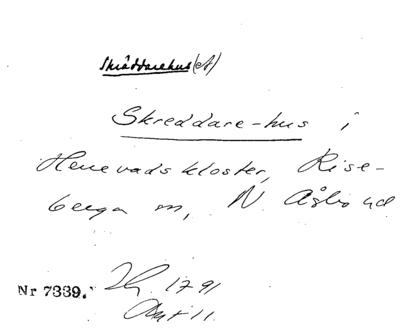 Skräddarehus (A)
Skreddare-hus i
Herrevadskloster, Rise-
berga sn, N. Åsbo hd
Nr 7339. Jb. 1791